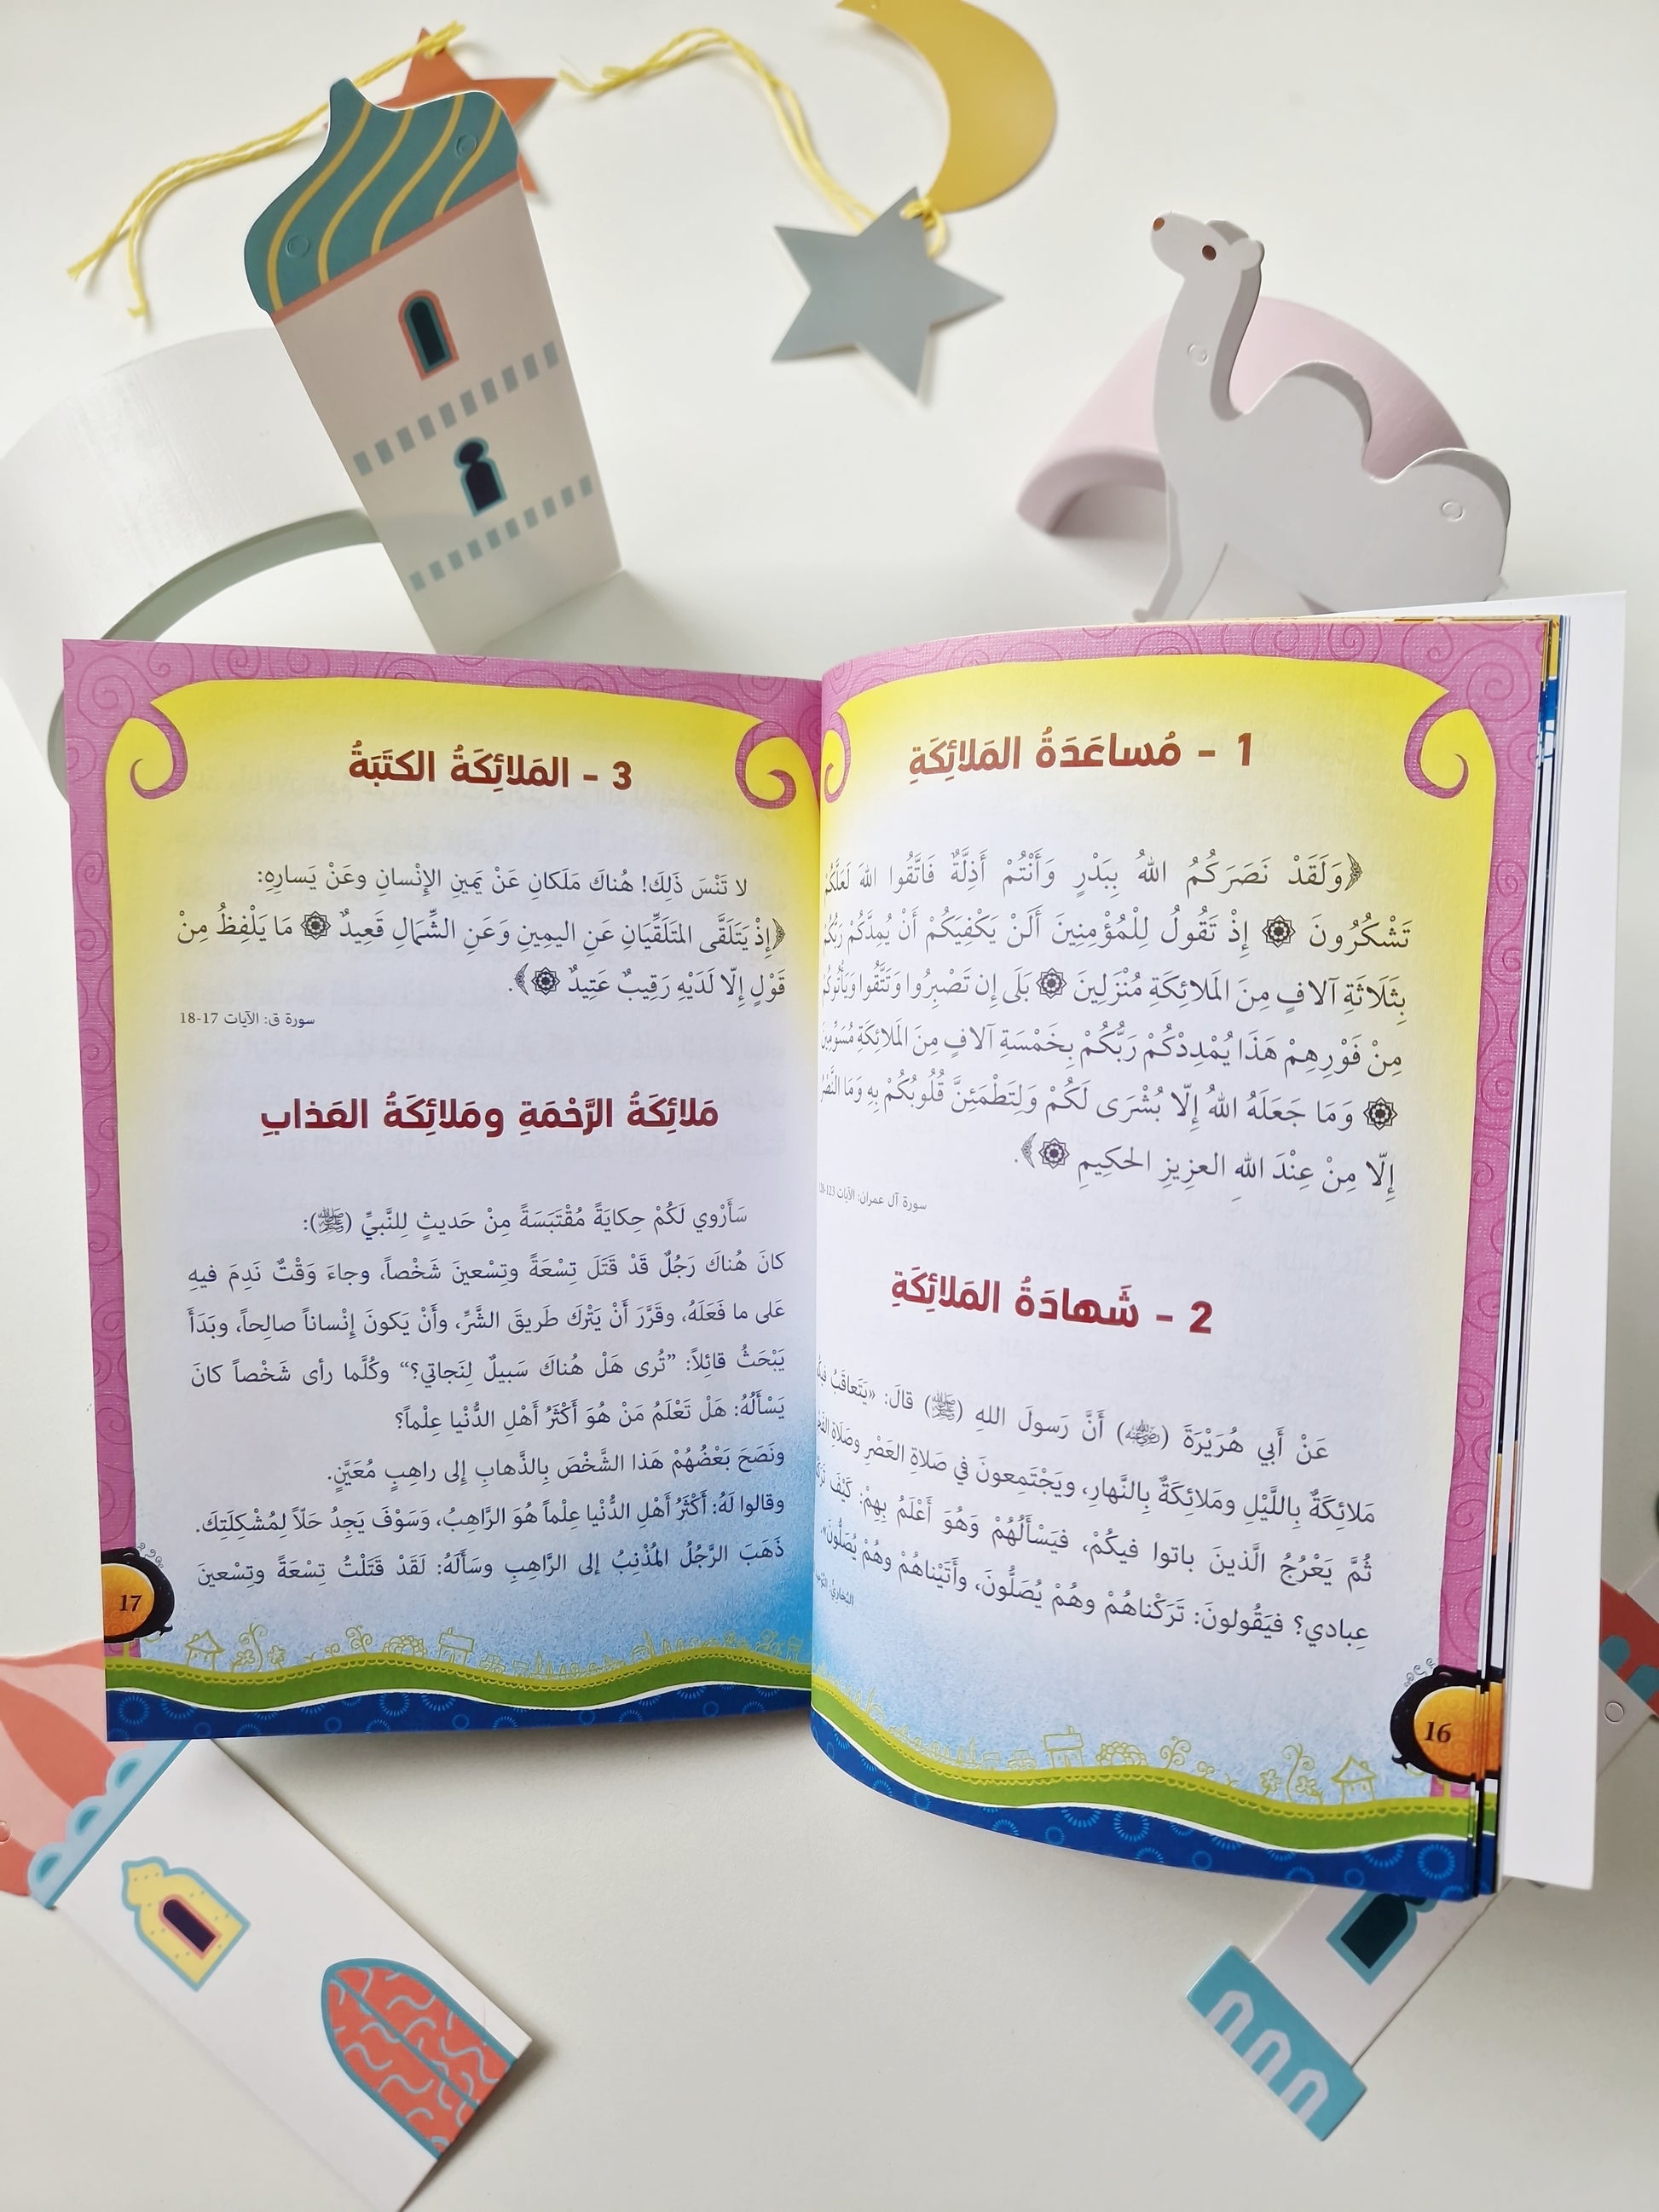 1 - مُساعَدَةُ المَلائِكَةِ
﴿وَلَقَدْ نَصَرَكُمُ اللهُ بِبَدْرٍ وَأَنْتُمْ أَذِلَّةٌ فَاتَّقُوا اللهَ لَعَلَّكُمْ
تَشْكُرُونَ ۞ إِذْ تَقُولُ لِلْمُؤْمِنِينَ أَلَنْ يَكْفِيَكُمْ أَنْ يُمِدَّكُمْ رَبُّكُمْ
بِثَلَاثَةِ آلافٍ مِنَ المَلائِكَةِ مُنْزَلِينَ ۞ بَلَى إِن تَصْبِرُوا وَتَتَّقُوا وَيَأْتُوكُمْ
مِنْ فَوْرِهِمْ هَذَا يُمْدِدْكُمْ رَبُّكُمْ بِخَمْسَةِ آلافٍ مِنَ المَلائِكَةِ مُسَوِّمِينَ
۞ وَمَا جَعَلَهُ اللهُ إِلّا بُشْرَى لَكُمْ وَلِتَطْمَئِنَّ قُلُوبُكُمْ بِهِ وَمَا النَّصْرُ
إِلّا مِنْ عِنْدَ اللهِ العزِيزِ الحكِيمِ ۞﴾.
سورة آل عمران: الآيات 123-126
2 - شَهادَةُ المَلائِكَةِ
عَنْ أَبي هُرَيْرَةَ (رضي الله عنه) أَنَّ رَسولَ اللهِ (ﷺ) قالَ: «يَتَعاقَبُ فيكُمْ
مَلائِكَةٌ بِاللَّيْلِ ومَلائِكَةٌ بِالنَّهارِ، ويَجْتَمِعونَ في صَلاةِ العَصْرِ وصَلاةِ
ثُمَّ يَعْرُجُ الَّذينَ باتوا فيكُمْ، فيَسْأَلُهُمْ وَهُوَ أَعْلَمُ بِهِمْ: كَيْفَ
عِبادي؟ فيَقُولونَ: تَرَكْناهُمْ وهُمْ يُصَلُّونَ، وأَتَيْناهُمْ وهُمْ يُصَلُّونَ».
البُخاريّ،
16
3 - المَلائِكَةُ الكتَبَةُ
لا تَنْسَ ذَلِكَ! هُناكَ مَلَكانِ عَنْ يَمينِ الإِنْسانِ وعَنْ يَسارِهِ:
﴿إِذْ يَتَلَقَّى المتَلَقِّيَانِ عَنِ اليمِينِ وَعَنِ الشِّمَالِ قَعِيدٌ ۞ مَا يَلْفِظُ مِنْ
قَوْلٍ إِلّا لَدَيْهِ رَقِيبٌ عَتِيدٌ ۞﴾.
سورة ق: الآيات 17-18
مَلائِكَةُ الرَّحْمَةِ ومَلائِكَةُ العَذابِ
سَأَرْوي لَكُمْ حِكايَةً مُقْتَبَسَةً مِنْ حَديثٍ لِلنَّبيِّ (ﷺ):
كانَ هُناكَ رَجُلٌ قَدْ قَتَلَ تِسْعَةً وتِسْعينَ شَخْصاً، وجاءَ وَقْتٌ نَدِمَ فيهِ
عَلى ما فَعَلَهُ، وقَرَّرَ أَنْ يَتْرُكَ طَريقَ الشَّرِّ، وأَنْ يَكونَ إِنْساناً صالِحاً، وبَدَأَ
يَبْحَثُ قائِلاً: ”تُرى هَلْ هُناكَ سَبيلٌ لِنَجاتي؟“ وكُلَّما رأى شَخْصاً كانَ
يَسْأَلُهُ: هَلْ تَعْلَمُ مَنْ هُوَ أَكْثَرُ أَهْلِ الدُّنْيا عِلْماً؟
ونَصَحَ بَعْضُهُمْ هَذا الشَّخْصَ بِالذَّهابِ إِلى راهِبٍ مُعَيَّنٍ.
وقالوا لَهُ: أَكْثَرُ أَهْلِ الدُّنْيا عِلْماً هُوَ الرَّاهِبُ، وَسَوْفَ يَجِدُ حَلّاً لِمُشْكِلَتِكَ.
ذَهَبَ الرَّجُلُ المُذْنِبُ إلى الرَّاهِبِ وسَأَلَهُ: لَقَدْ قَتَلْتُ تِسْعَةً وتِسْعينَ
17